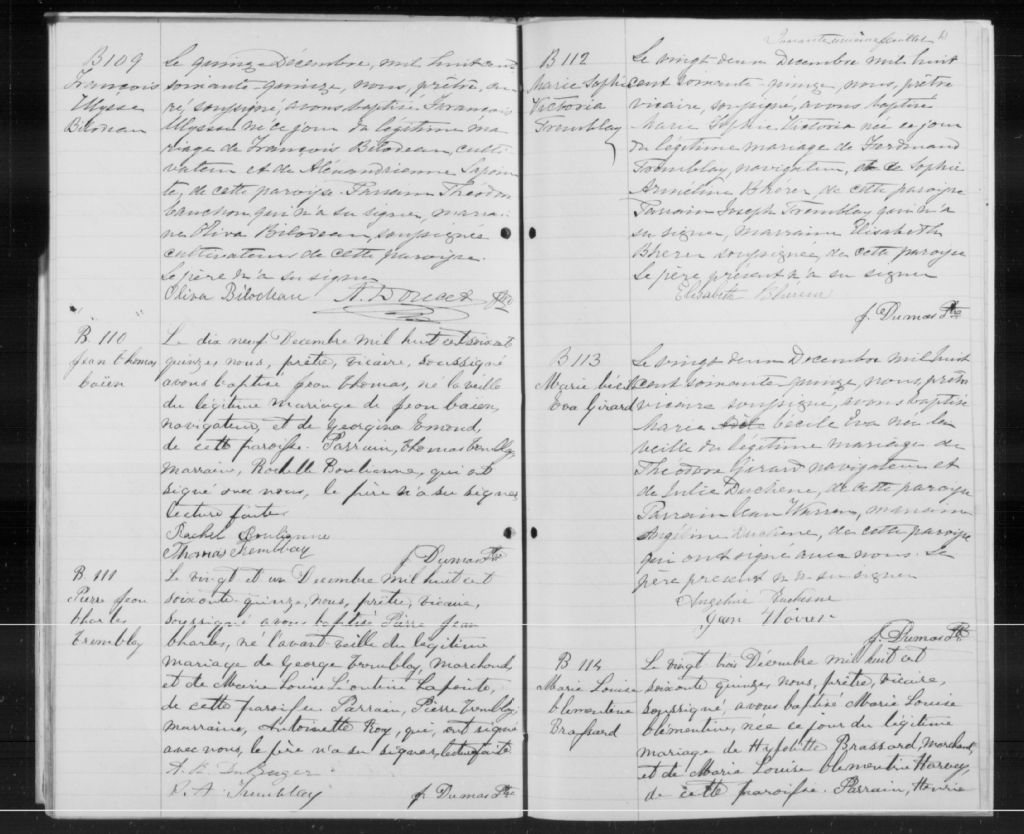 B109
François
Ulysse
Bilodeau
Le quinze Décembre, mil huit cent
soixante-quinze, nous, prêtre, cu
ré, soussigné, avons baptisé François
Ulysse né ce jour du légitime ma
riage de François Bilodeau, culti-
vateur et de Alexandrienne Lapoin
te, de cette paroisse. Parrain Théodon
Cauchon qui n'a su signer, marrai-
ne Oliva Bilodeau, soussignée
cultivateurs de cette paroisse.
Le père n'a su signer
Oliva Bilodeau A. Doucet Ptre
B. 110
Jean thomas
baïen
Le dix neuf Decembre mil huit cent soixante
quinze, nous, prêtre, vicaire, soussigné
avons baptisé Jean thomas, né la veille
du légitime mariage de Jean baien,
navigateur, et de Georgina Emond,
de cette paroisse. Parrain, thomas tremblay
marraine, Rachelle Boulienne, qui ont
signé avec nous, le père n'a su signer
lecture faite
Rachel Boulienne
Thomas Tremblay
J. Dumas Ptre
B. 111
Pierre Jean
Charles
tremblay
Le vingt et un Decembre mil huit cent
soixante-quinze, nous, prêtre, vicaire,
soussigné avons baptisé Pierre Jean
Charles, né l'avant veille du légitime
mariage de George tremblay, marchand
et de Marie Louise Léontine Lapointe,
de cette paroisse. Parrain, Pierre tremblay
marraine, Antoinette Roy, qui, ont signé
avec nous, le père n'a su signer, lecture faite
P. A. Tremblay
J. Dumas Ptre
feuillet
B 112
Marie Sophie
Victoria
Tremblay
Le vingt deux Decembre mil huit
cent soixante-quinze, nous, prêtre
vicaire, soussigné, avons baptisé
Marie Sophie Victoria née ce jour
du légitime mariage de Ferdinand
Tremblay, navigateur, et de Sophie
Armeline Bherer de cette paroisse
Parrain Joseph Tremblay qui n'a
su signer, marraine Elisabeth
Bherer soussignée, de cette paroisse
Le père présent n'a su signer
Elisabeth Bherer
J. Dumas Ptre
B 113
Marie Cécile
Eva Girard
Le vingt deux Decembre mil huit
cent soixante-quinze, nous, prêtre
vicaire soussigné, avons baptisé
Marie Cécile Eva née la
veille du légitime mariage de
Théodore Girard navigateur et
de Julie Duchene, de cette paroisse
Parrain Jean Warren, marraine
Angéline Duchene, de cette paroisse
qui ont signé avec nous. Le
père présent n'a su signer
Angeline Duchene
Jean Warren
J. Dumas Ptre
B 114
Marie Louise
Clémentine
Brassard
Le vingt trois Décembre mil huit cent
soixante quinze, nous, prêtre, vicaire,
soussigné, avons baptisé Marie Louise
Clémentine, née ce jour du légitime
mariage de Hypolitte Brassard, marchand,
et de Marie Louise Clémentine Harvey,
de cette paroisse. Parrain, Henrie